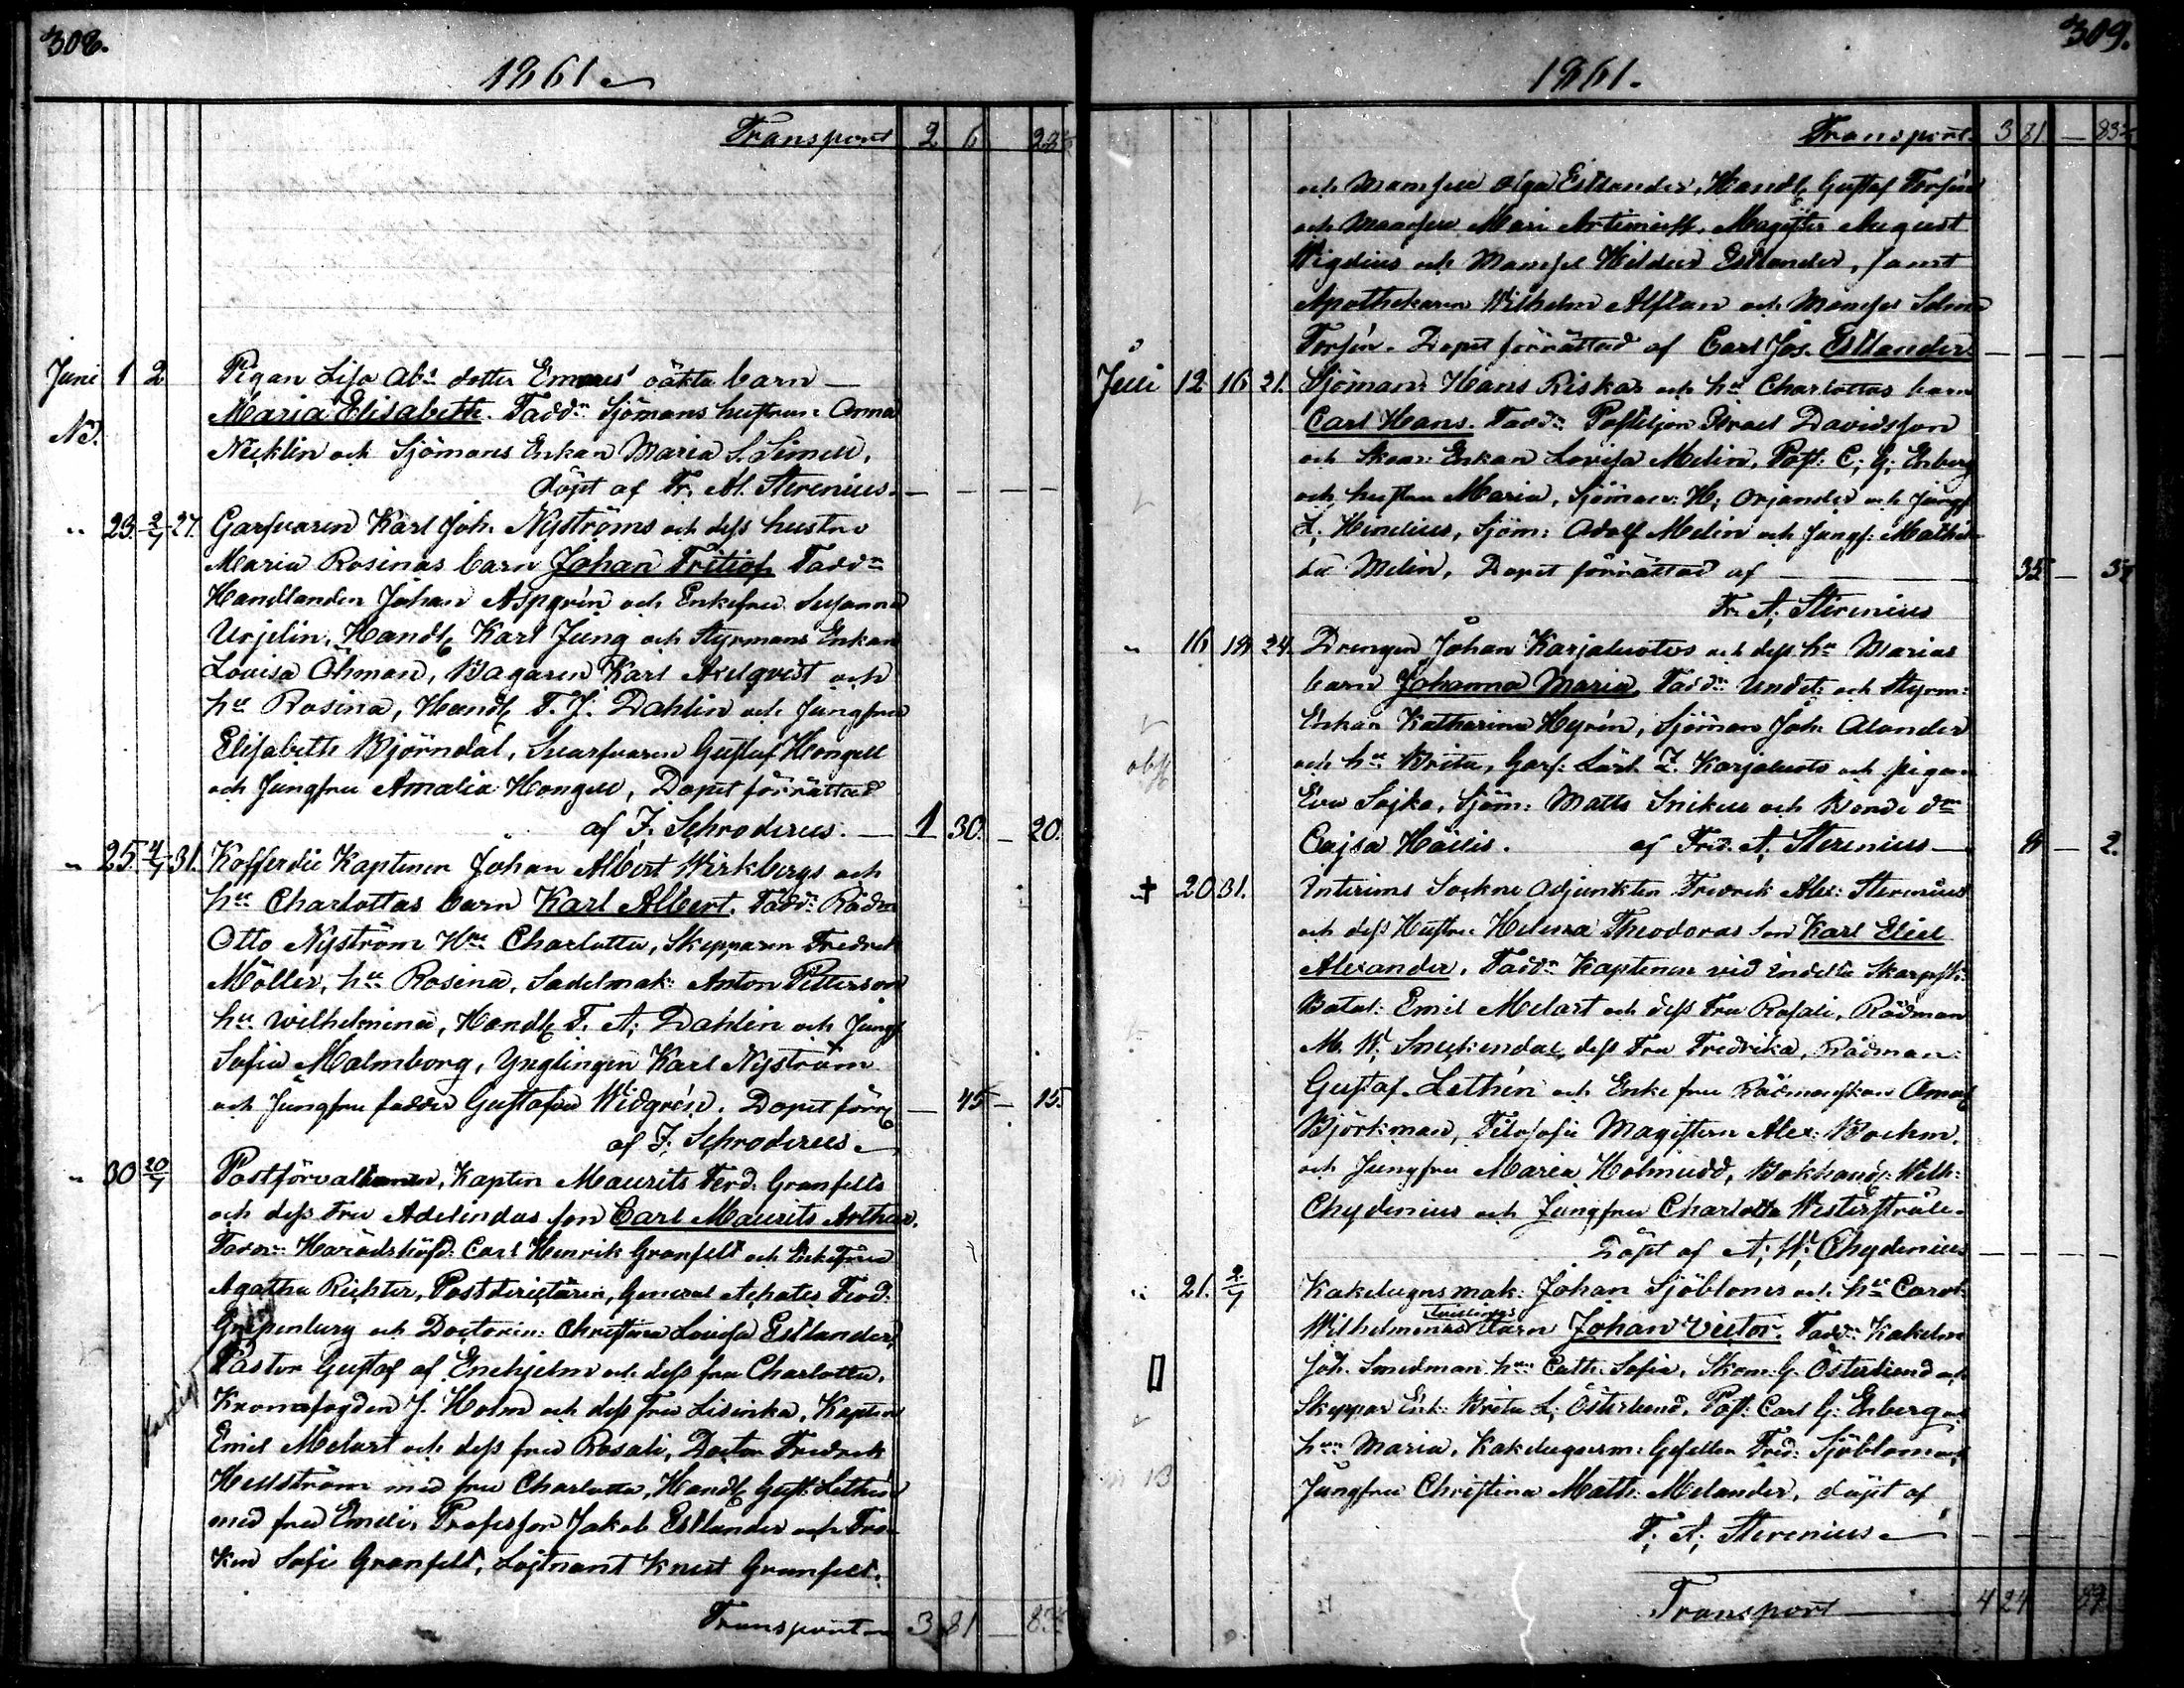 308.
1861
Transport 2 6 23
Juni 1 2 Pigan Lisa Abr dotter Emaus' oäkta barn —
Maria Elisabeth. Fadd: Sjömans hustrun Anna
No. Necklin och Sjömans Enkan Maria S. Simell,
döpt af Fr. Al. Sterenius. — — — —
" 23. 2/7 27. Garfvaren Karl Joh. Nyströms och dess hustru
Maria Rosinas barn Johan Fritiof Fadd:
Handlanden Johan Aspgrén och Enkefru Susanna
Urjelin, Handl. Karl Jung och Styrmans Enkan
Lovisa Öhman, Bagaren Karl Axelqvist och
hu Rosina, Handl. F. J. Dahlin och Jungfru
Elisabeth Björndal, Svarfvaren Gustaf Hongell
och Jungfru Amalia Hongell, Dopet förrättad
af F. Schroderus. — 1 30. — 20.
" 25. 4/7 31. Kofferdie Kaptenen Johan Albert Wirkbergs och
hus Charlottas barn Karl Albert. Fadd: Rådm
Otto Nyström Hu Charlotta, Skepparen Fredrek
Möller, hu Rosina, Sadelmak: Anton Petterson
hu Wilhelmina, Handl. F. A. Dahlin och Jungf
Sofia Malmborg, Ynglingen Karl Nyström
och Jungfru Gustafva Widgrén. Dopet förr — 45 — 15.
af F. Schroderus
" 30 20/7 Postförvaltaren, Kapten Maurits Ferd. Granfelts
och dess Fru Adelindas son Carl Maurits Arthur.
Fadd: Häradshöfd. Carl Henrik Granfelt och Enkefrun
Agatha Richter, Postdirektören, General Achates Ferd.
Gripenburg och Doctorin: Christina Lovisa Estlander,
Pastor Gustaf af Enehjelm och dess fru Charlotta,
Kronofogden J. Holm och dess Fru Lisinka, Kapten
Emil Melart och dess fru Rosali, Doctor Fredrek
Hellström med fru Charlotta, Handl. Gust. Lethén
med fru Emeli, Professor Jakob Estlander och Frö-
ken Sofi Granfelt, Löjtnant Knut Granfelt.
Transport 3 81 — 83
309.
1861.
Transport. 3 81 — 83
och Mamsell Olga Estlander, Handl. Gustaf Forsén
och Mamsell Mari Artimieff, Magister August
Wigelius och Mamsel Hildur Estlander, samt
Apothekaren Wilhelm Alftan och Mamsel Selma
Forsén. Dopet förrättad af Carl Jos. Estlander
Juli 12 16 21. Sjöman: Hans Riskas och hu Charlottas barn
Carl Hans. Fadd: Postiljon Israel Davidsson
och Skom: Enkan Lovisa Melin, Post: C. G. Enberg
och hustru Maria, Sjöman: H. Orjander och Jungf
L. Hendlius, Sjöm: Adolf Melin och Jungf: Mathil-
da Melin, Dopet förrättad af — 35 —
Fr. A. Sterenius
" 16 18 24. Drengen Johan Karjaluotos och dess hu Marias
barn Johanna Maria, Fadd: Undet: och Styrm:
Enkan Katharina Heyrén, Sjöman Joh. Alander
och hu Brita, Garf: Lärl. Z. Karjaluoto och pigan
Eva Sojka, Sjöm: Matts Snikus och Bonde dr
Cajsa Höilis. af Fred. A. Sterenius — 8 — 2.
" † 20 31. Interims Sockne Adjunkten Fredrik Alex: Sterenius
och dess Hustru Helena Theodoras Son Karl Eliel
Alexander. Fadd: Kaptenen vid indelta Skarpsk:
Batal: Emil Melart och dess Fru Rosali, Rådman
M. W. Snellman, dess Fru Fredrika, Rådman
Gustaf Lethén och Enke fru Rådmanskan
Björkman, Filosofie Magistern Alex: Boehm.
och Jungfru Maria Holmudd, Bokhand: Wilh:
Chydenius och Jungfru Charlotta Westerstråle.
Döpt af A. W. Chydenius — — — —
" 21. 2/7 Kakelugnsmak: Johan Sjöbloms och hu Carol:
Wilhelminas tvillings Barn Johan Victor. Fadd: Kakelm
Joh. Smedman hu Cath. Sofia, Skom: G. Österlund och
Skeppar Enk: Brita L. Österlund, Post: Carl G. Enberg och
hu Maria, Kakelugnsm: Gesellen Fred: Sjöblom och
Jungfru Christina Math: Melander, döpt af
F. A. Sterenius
Transport — 4 24 89